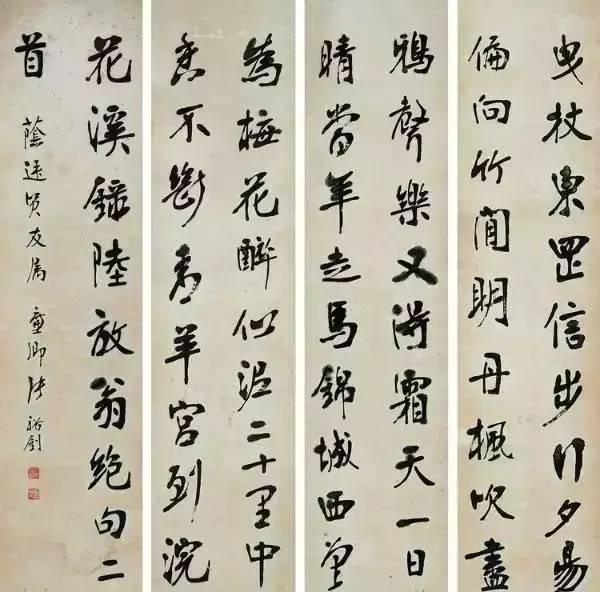 曳杖東罡信步行夕陽
偏向竹間明丹楓吹盡
鴉聲樂又得霜天一日
晴當年走馬錦城西曾
為梅花醉似泥二十里中
香不斷青羊宮到浣
花溪錄陸放翁絕句二
首
蔭遠賢友屬 廉卿張裕釗